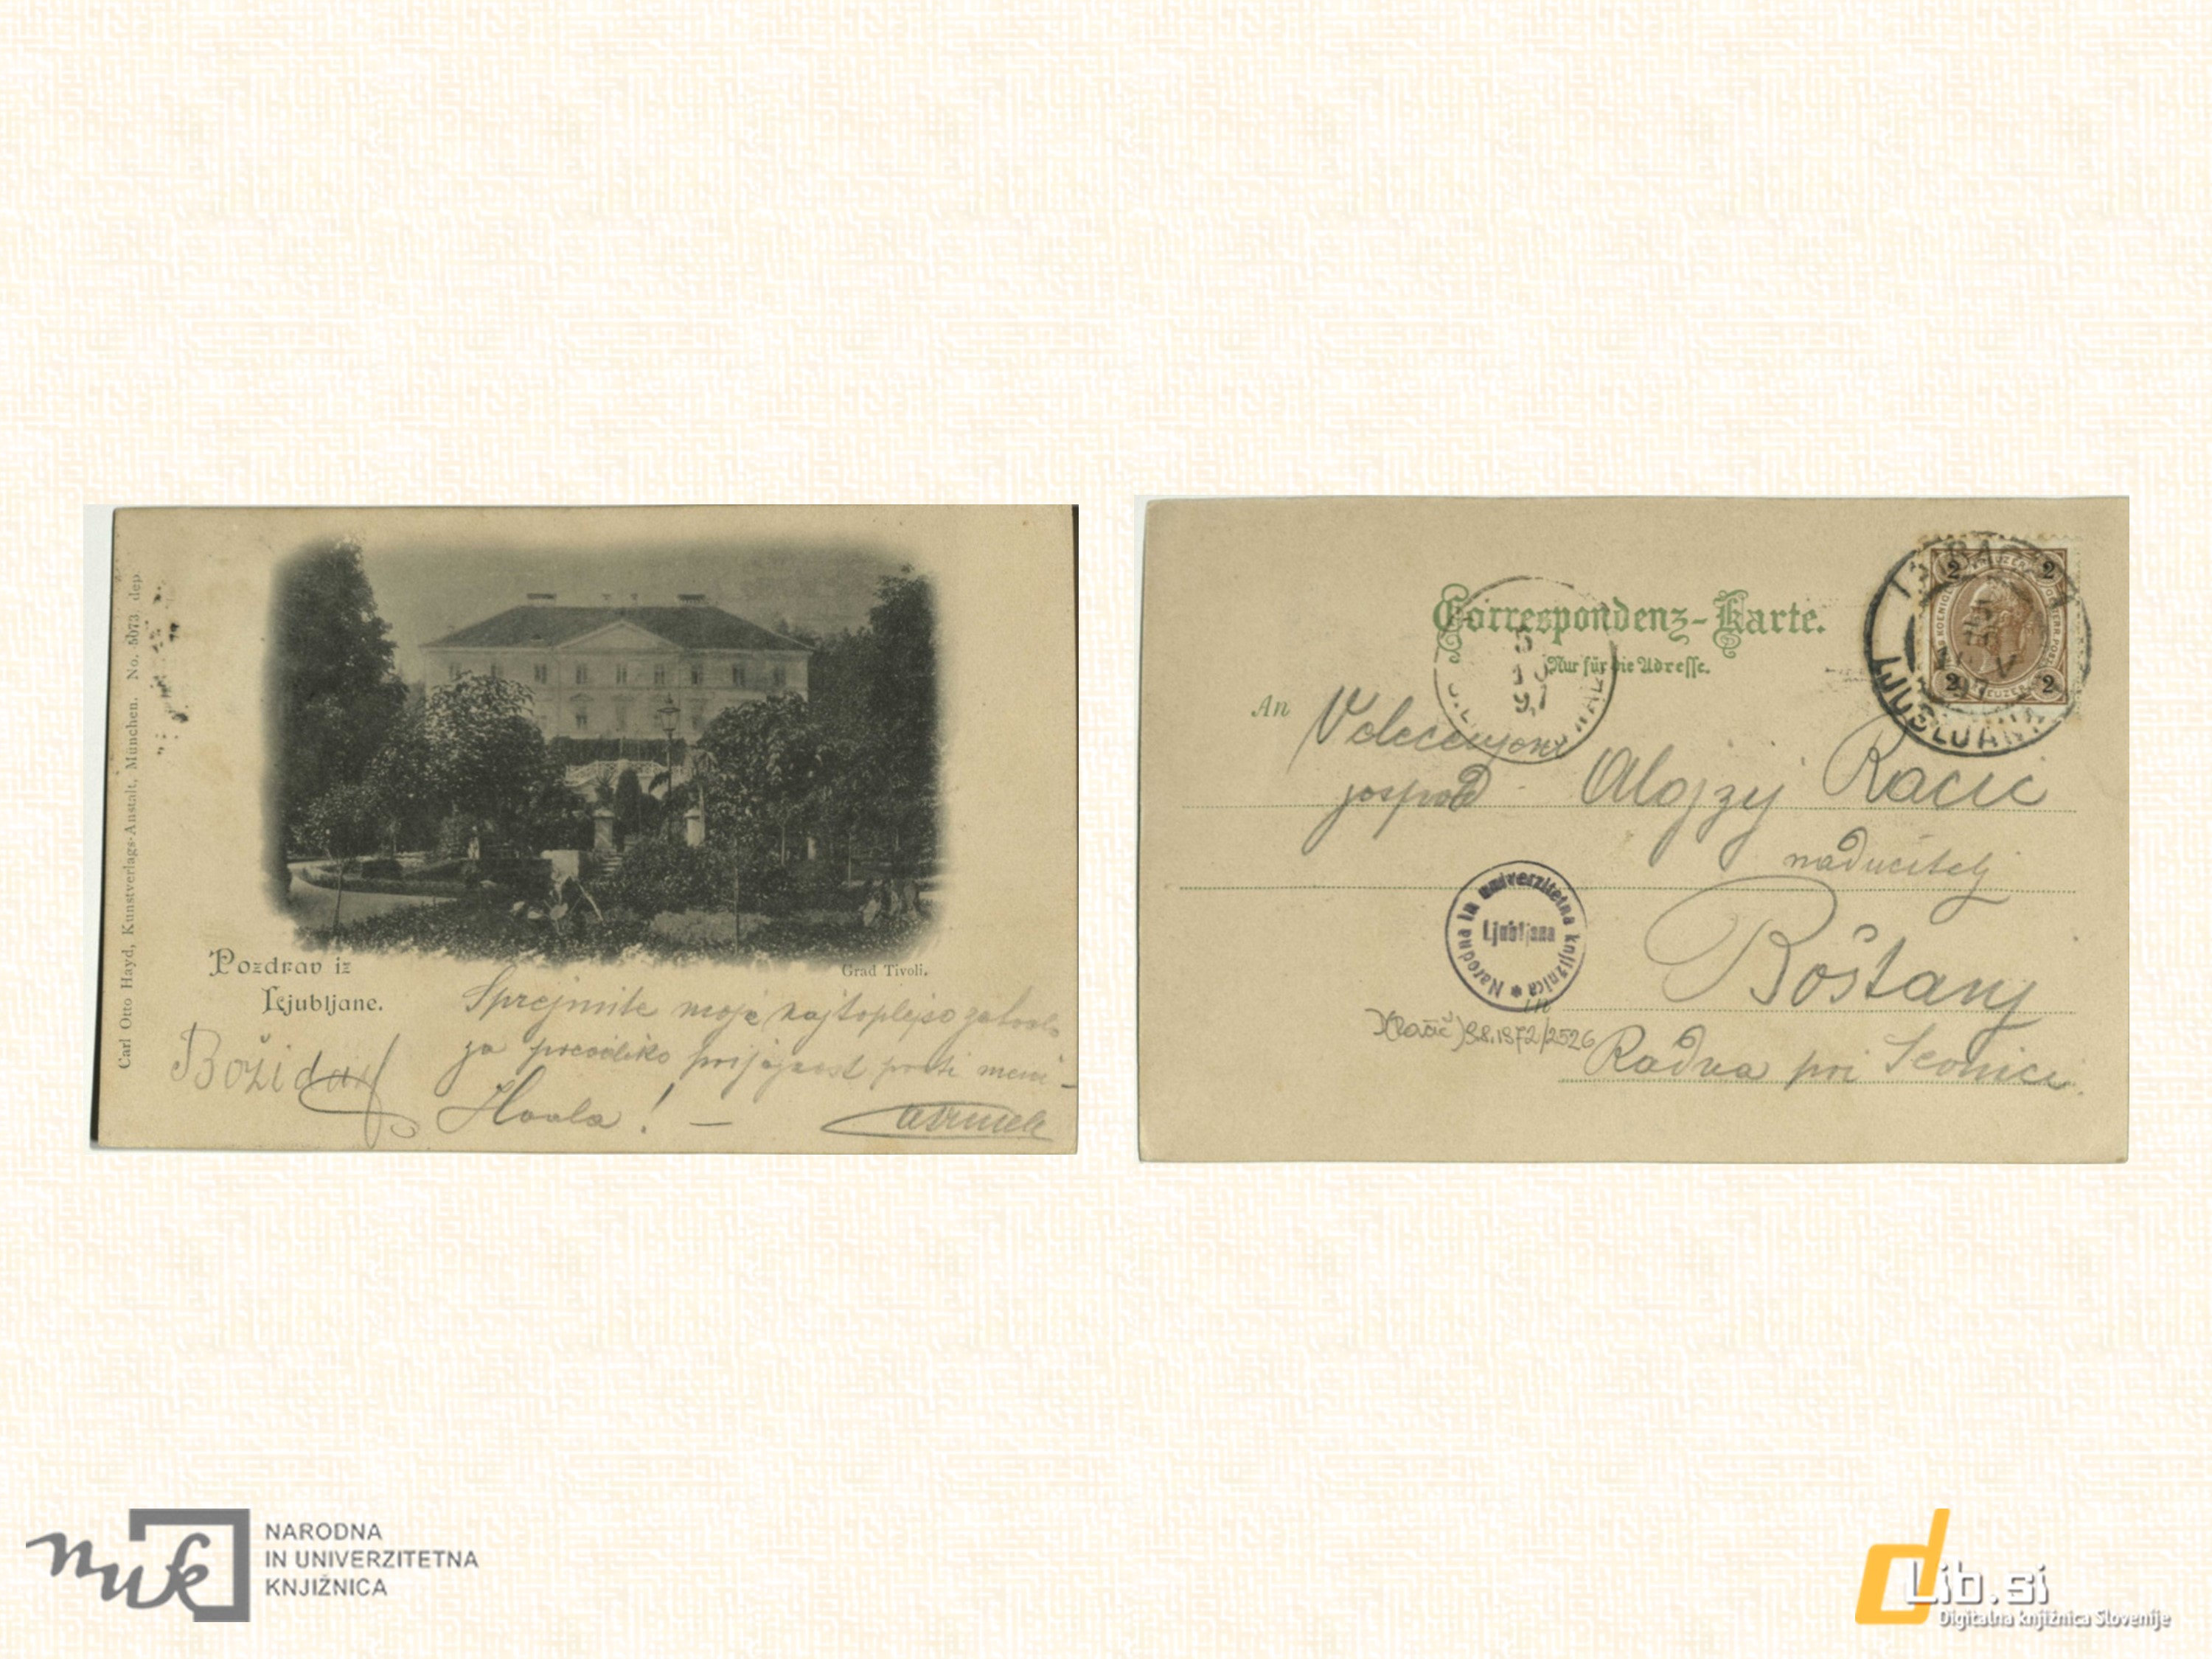 Carl Otto Hayd, Kunstverlags-Anstalt, München. No. 5073 dep.
Pozdrav iz
Ljubljane.
Grad Tivoli.
Sprejmite moje najtoplejso zahvalo
za preveliko prijaznost proti meni -
Hvala! -
Božidar
Correspondenz-Karte.
Nur für die Adresse.
5
10
97
2 2
2 2
LJUBLJANA
An
Velecenjeni
gospod Alojzij Racic
naducitelj
Boštanj
in
Radna pri Sevnici.
Narodna in univerzitetna knjižnica
Ljubljana
(Račič) 9.8.1972/2526
nuk
NARODNA
IN UNIVERZITETNA
KNJIŽNICA
dLib.si
Digitalna knjižnica Slovenije